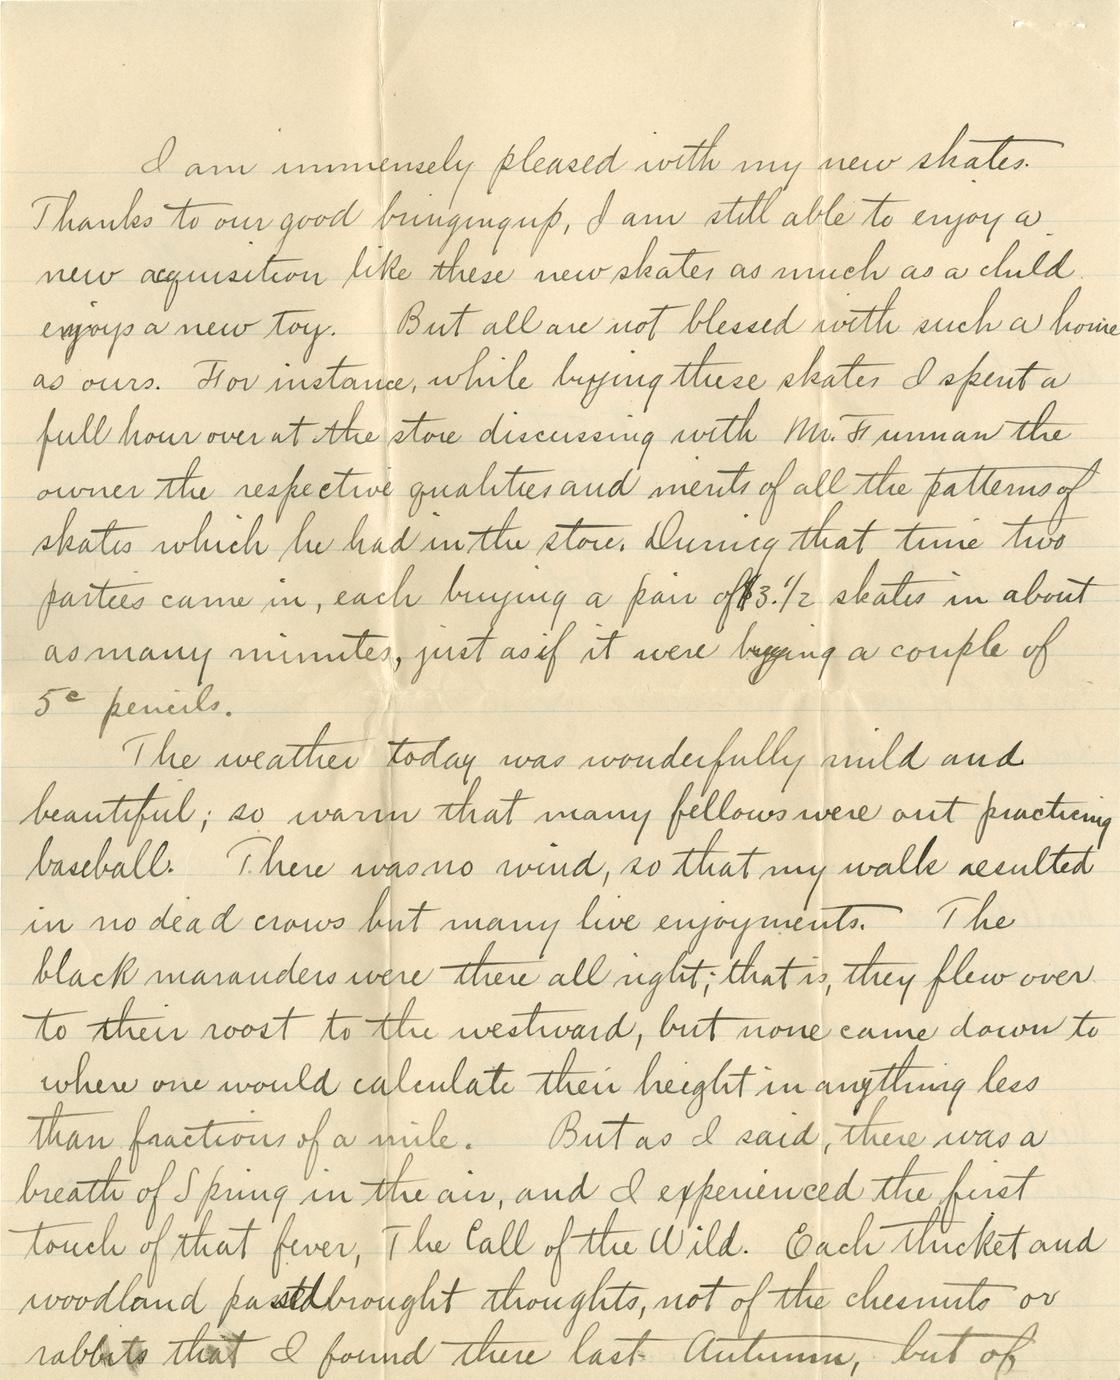 I am immensely pleased with my new skates.
Thanks to our good bringingup, I am still able to enjoy a
new acquisition like these new skates as much as a child
enjoys a new toy. But all are not blessed with such a home
as ours. For instance, while buying these skates I spent a
full hour over at the store discussing with Mr. Furman the
owner the respective qualities and merits of all the patterns of
skates which he had in the store. During that time two
parties came in, each buying a pair of $3.1/2 skates in about
as many minutes, just as if it were buying a couple of
5c pencils.
The weather today was wonderfully mild and
beautiful; so warm that many fellows were out practicing
baseball. There was no wind, so that my walk resulted
in no dead crows but many live enjoyments. The
black marauders were there all right; that is, they flew over
to their roost to the westward, but none came down to
where one would calculate their height in anything less
than fractions of a mile. But as I said, there was a
breath of Spring in the air, and I experienced the first
touch of that fever, The Call of the Wild. Each thicket and
woodland passed brought thoughts, not of the chesnuts or
rabbits that I found there last Autumn, but of